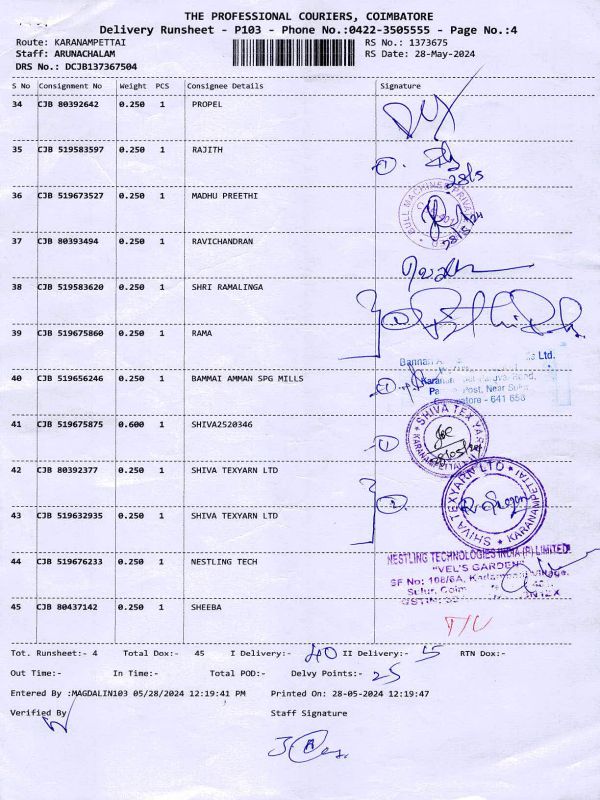 THE PROFESSIONAL COURIERS, COIMBATORE
Delivery Runsheet - P103 - Phone No.:0422-3505555 - Page No.:4
Route: KARANAMPETTAI RS No.: 1373675
Staff: ARUNACHALAM RS Date: 28-May-2024
DRS No.: DCJB137367504
S No Consignment No Weight PCS Consignee Details Signature
34 CJB 80392642 0.250 1 PROPEL
35 CJB 519583597 0.250 1 RAJITH
1.
28/5
36 CJB 519673527 0.250 1 MADHU PREETHI
BULL MACHINES PRIVA
28/5/24
37 CJB 80393494 0.250 1 RAVICHANDRAN
38 CJB 519583620 0.250 1 SHRI RAMALINGA
39 CJB 519675860 0.250 1 RAMA
Bannari A s Ltd.
40 CJB 519656246 0.250 1 BAMMAI AMMAN SPG MILLS
1
Road,
Post, Near Sulur
- 641 658
41 CJB 519675875 0.600 1 SHIVA2520346
SHIVA TEX YARN
KARANAMPETTAI
1
28/05/24
42 CJB 80392377 0.250 1 SHIVA TEXYARN LTD
2
SHIVA TEXYARN LTD
KARANAMPETTAI
43 CJB 519632935 0.250 1 SHIVA TEXYARN LTD
44 CJB 519676233 0.250 1 NESTLING TECH
NESTLING TECHNOLOGIES INDIA (P) LIMITED
"VEL'S GARDEN"
SF No: 108/6A, Kadampadi Village,
Sulur, Coim
GSTIN:
45 CJB 80437142 0.250 1 SHEEBA
T/C
Tot. Runsheet:- 4 Total Dox:- 45 I Delivery:- 40 II Delivery:- 5 RTN Dox:-
Out Time:- In Time:- Total POD:- Delvy Points:- 25
Entered By :MAGDALIN103 05/28/2024 12:19:41 PM Printed On: 28-05-2024 12:19:47
Verified By Staff Signature